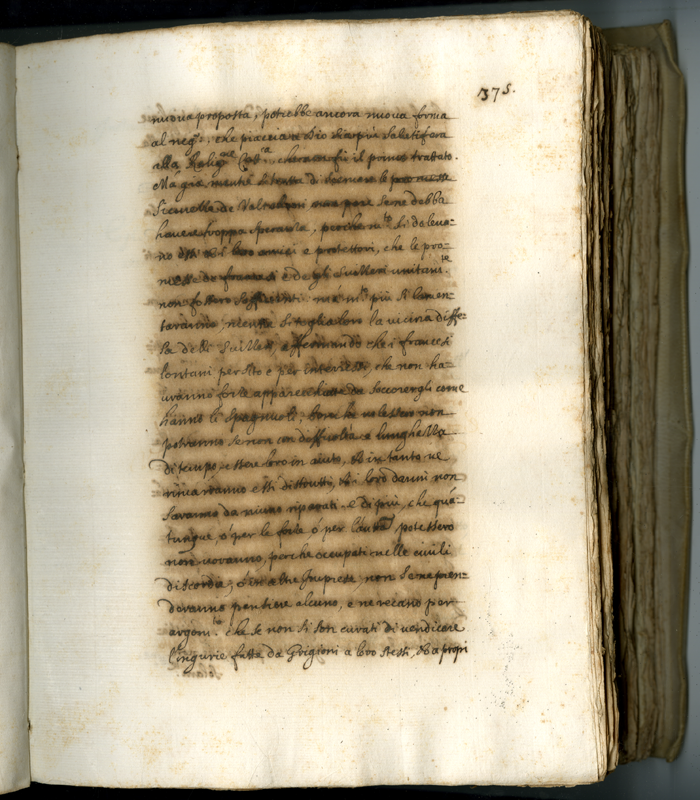 375.
nuova proposta, potrebbe ancora nuova forma
al neg.º, che piaccia a Dio sia più salutifera
alla Relig.ne Catt.ca, che non fù il primo trattato.
Mà già, mentre si tratta di the le promesse
de Valtolini pare se ne debba
havere troppa speranza, perche si doleva-
no con i loro amici e protettori, che le pro-
messe de francesi e degli Suizzeri unitam.te
non fossero sufficienti. mà più si lamen-
taranno, mentre si toglie loro la vicina diffe-
sa delli Suizzeri, affermando che i francesi
lontani per sito e per interesse, che non ha-
uranno forze apparecchiate da soccorergli come
hanno li Spagnuoli, se volessero non
potranno se non con difficoltà e lunghezza
di tempo essere loro in aiuto, et in tanto
rimarranno essi distrutti, et i loro danni non
saranno da niuno riparati. e di più, che quan-
tunque, ò per le forze, ò per potessero
non vorranno, perche occupati nelle civili
discordie, ò in altre Imprese, non se ne pren-
deranno pensiero alcuno, e ne recano per
argom.to che se non si son curati di vendicare
l'ingiurie fatte da Grigioni a loro stessi, et a propri